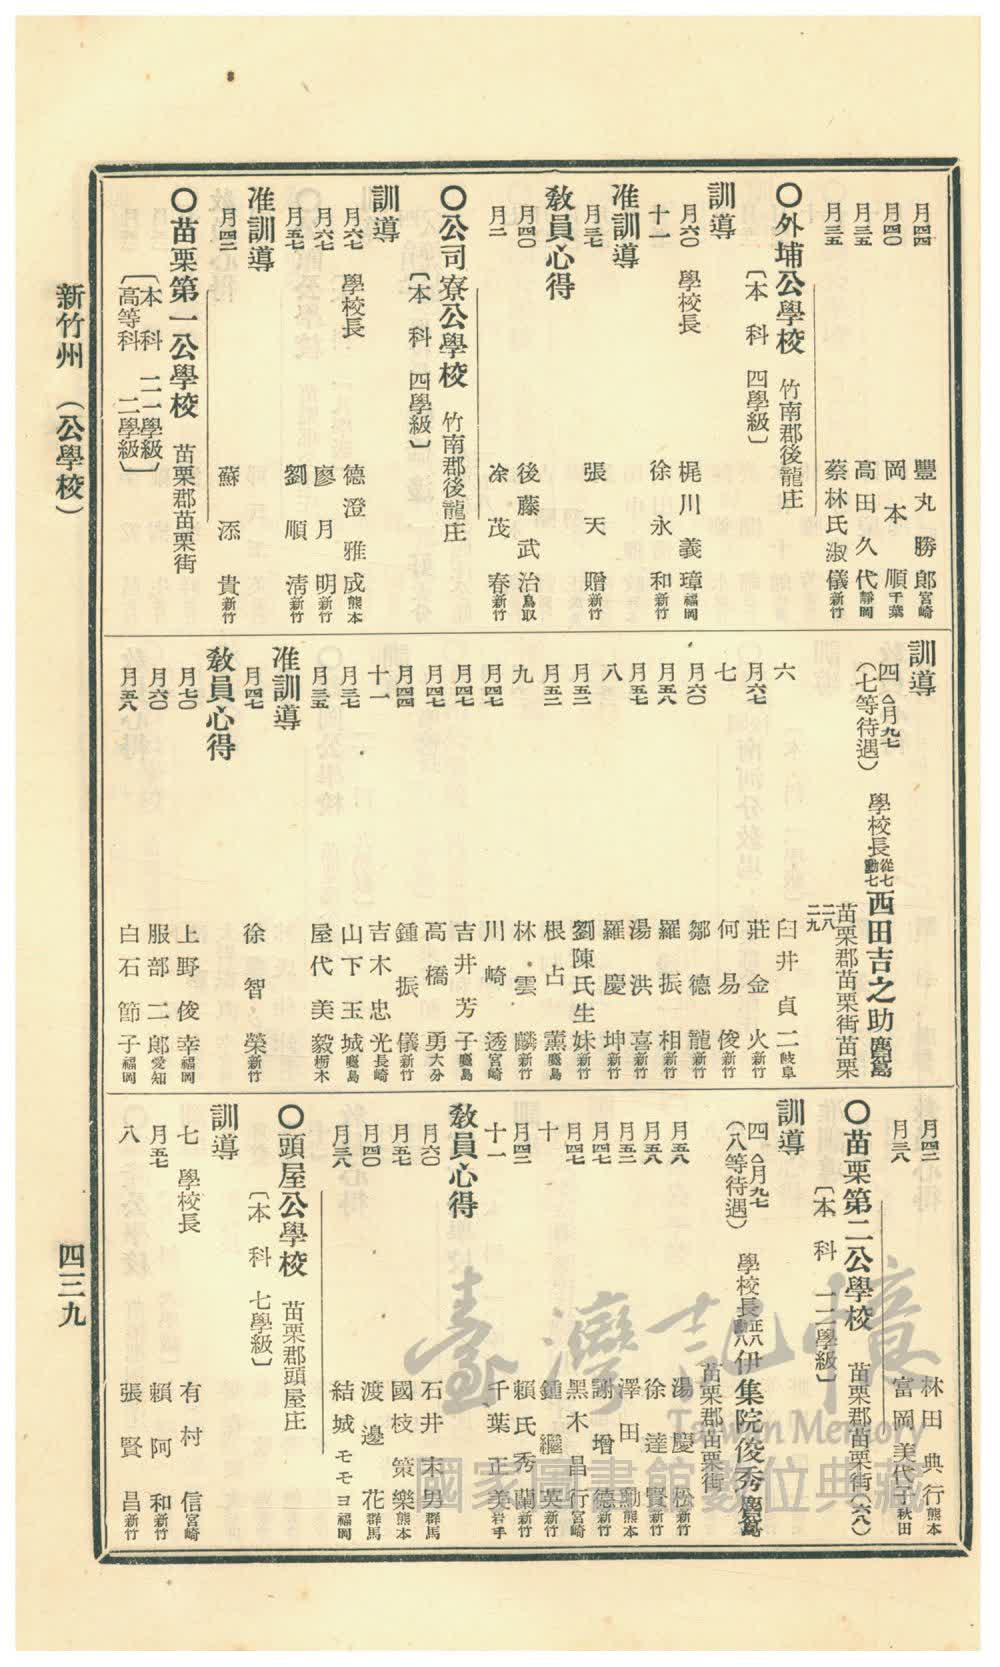 月四四 豐丸勝郎 宮崎
月四〇 岡本順 千葉
月三五 高田久代 靜岡
月三五 蔡林氏淑儀 新竹
〇外埔公學校 竹南郡後龍庄
〔本科 四學級〕
訓導
月六〇 學校長 梶川義璋 福岡
十一 徐永和 新竹
准訓導
月三七 張天贈 新竹
教員心得
月四〇 後藤武治 鳥取
月二 涂茂春 新竹
〇公司寮公學校 竹南郡後龍庄
〔本科 四學級〕
訓導
月六七 學校長 德澄雅成 熊本
月六七 廖月明 新竹
月五七 劉順淸 新竹
准訓導
月四二 蘇添貴 新竹
〇苗栗第一公學校 苗栗郡苗栗街
〔本科 二一學級〕
〔高等科 二學級〕
訓導
四 △月九七 學校長 從七勳七 西田吉之助 鹿兒島
(七等待遇) 苗栗郡苗栗街苗栗
二八二九
六 臼井貞二 岐阜
月六七 莊金火 新竹
七 何易俊 新竹
月六〇 鄒德龍 新竹
月五八 羅振相 新竹
月五七 湯洪喜 新竹
八 羅慶坤 新竹
月五二 劉陳氏生妹 新竹
月五二 根占薰 鹿兒島
九 林雲麟 新竹
月四七 川崎透 宮崎
月四七 吉井芳子 鹿兒島
月四七 高橋勇 大分
月四四 鍾振儀 新竹
十一 吉木忠光 長崎
月三七 山下玉城 鹿兒島
月三五 屋代美毅 栃木
准訓導
月四七 徐智榮 新竹
教員心得
月七〇 上野俊幸 福岡
月六〇 服部二郎 愛知
月五八 白石節子 福岡
月四二 林田典行 熊本
月三八 富岡美代子 秋田
〇苗栗第二公學校 苗栗郡苗栗街(六八)
〔本科 一二學級〕
訓導
四 △月九七 學校長 正八勳八 伊集院俊秀 鹿兒島
(八等待遇) 苗栗郡苗栗街
月五八 湯慶松 新竹
月五八 徐達賢 新竹
月五二 澤田勳 熊本
月四七 謝增德 新竹
月四七 黑木昌行 宮崎
十 鍾繼英 新竹
月四二 賴氏秀蘭 新竹
十一 千葉正美 岩手
教員心得
月六〇 石井末男 群馬
月五七 國枝策樂 熊本
月四〇 渡邊花 群馬
月三八 結城モモヨ 福岡
〇頭屋公學校 苗栗郡頭屋庄
〔本科 七學級〕
訓導
七 學校長 有村信 宮崎
月五七 賴阿和 新竹
八 張賢昌 新竹
新竹州 (公學校) 四三九
臺灣記憶
Taiwan Memory
國家圖書館數位典藏